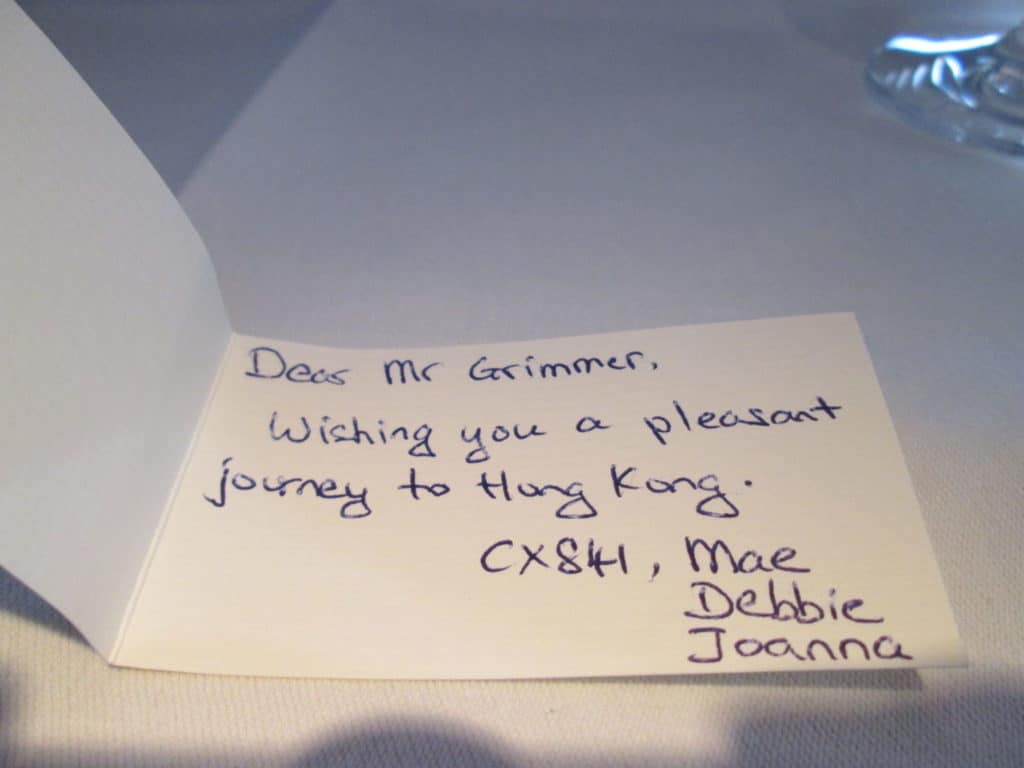 Dear Mr Grimmer,
Wishing you a pleasant
journey to Hong Kong.
CX841, Mae
Debbie
Joanna